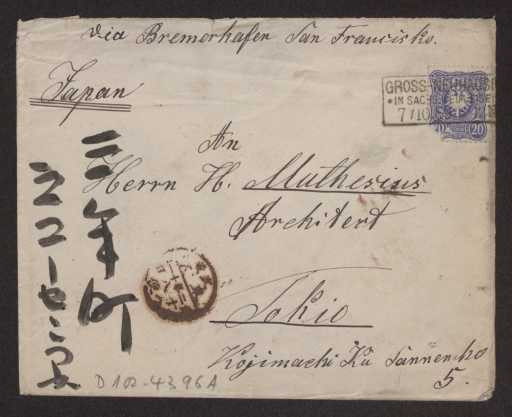 via Bremerhafen San Francisko.
Japan
GROSS-NEUHAUSE
* IN SACHS
7/10
20
An
Herrn H. Muthesius
Architect
Tokio
Kojimachi Ku Sannencho
5.
三年町
D 102-4396A